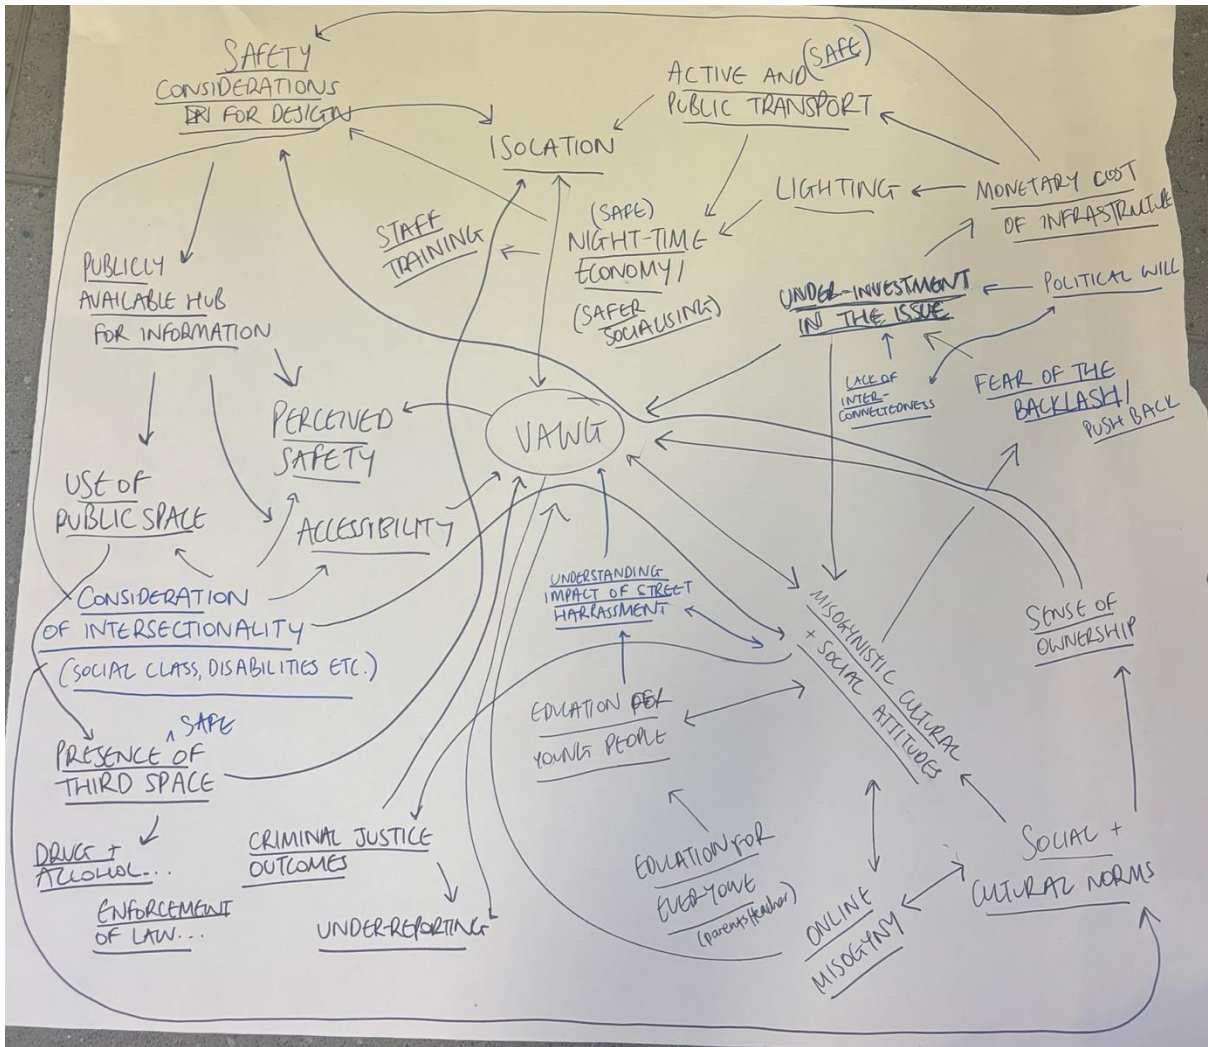 SAFETY
CONSIDERATIONS
FOR DESIGN
ACTIVE AND (SAFE)
PUBLIC TRANSPORT
ISOLATION
LIGHTING
MONETARY COST
OF INFRASTRUTURE
STAFF
TRAINING
(SAFE)
NIGHT-TIME
ECONOMY/
(SAFER
SOCIALISING)
PUBLICLY
AVAILABLE HUB
FOR INFORMATION
UNDER-INVESTMENT
IN THE ISSUE
POLITICAL WILL
LACK OF
INTER-
CONNECTEDNESS
FEAR OF THE
BACKLASH/
PUSH BACK
PERCEIVED
SAFETY
VAWG
USE OF
PUBLIC SPACE
ACCESSIBILITY
CONSIDERATION
OF INTERSECTIONALITY
(SOCIAL CLASS, DISABILITIES ETC.)
UNDERSTANDING
IMPACT OF STREET
HARRASSMENT
MISOGYNISTIC CULTURAL
+ SOCIAL ATTITUDES
SENSE OF
OWNERSHIP
SAFE
PRESENCE OF
THIRD SPACE
EDUCATION
YOUNG PEOPLE
DRUG +
ALCOHOL...
ENFORCEMENT
OF LAW...
CRIMINAL JUSTICE
OUTCOMES
UNDER-REPORTING
EDUCATION FOR
EVERYONE
ONLINE
MISOGYNY
SOCIAL +
CULTURAL NORMS